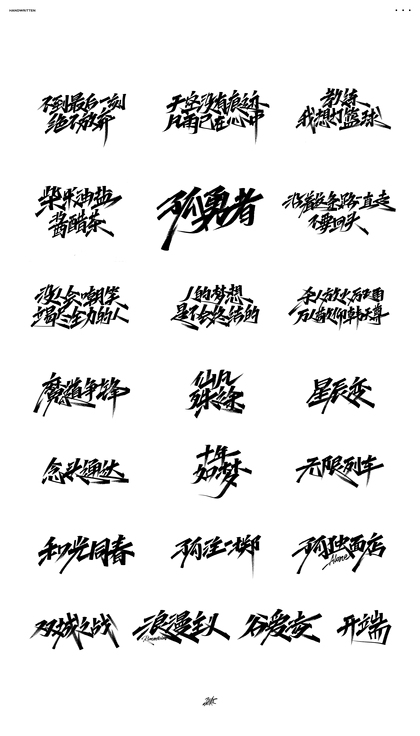 HANDWRITTEN
不到最后一刻
绝不放弃
天空没有痕迹
风雨已在心中
教练
我想打篮球
柴米油盐
酱醋茶
孤勇者
沿着这条路一直走
不要回头
没人会嘲笑
竭尽全力的人
人的梦想
是不会终结的
万人敬仰韩天尊
魔道争锋
仙凡
殊途
星辰变
念头通达
十年
如梦
无限列车
和光同春
孤注一掷
孤独面店
Alone
双城之战
浪漫主义
谷爱凌
开端